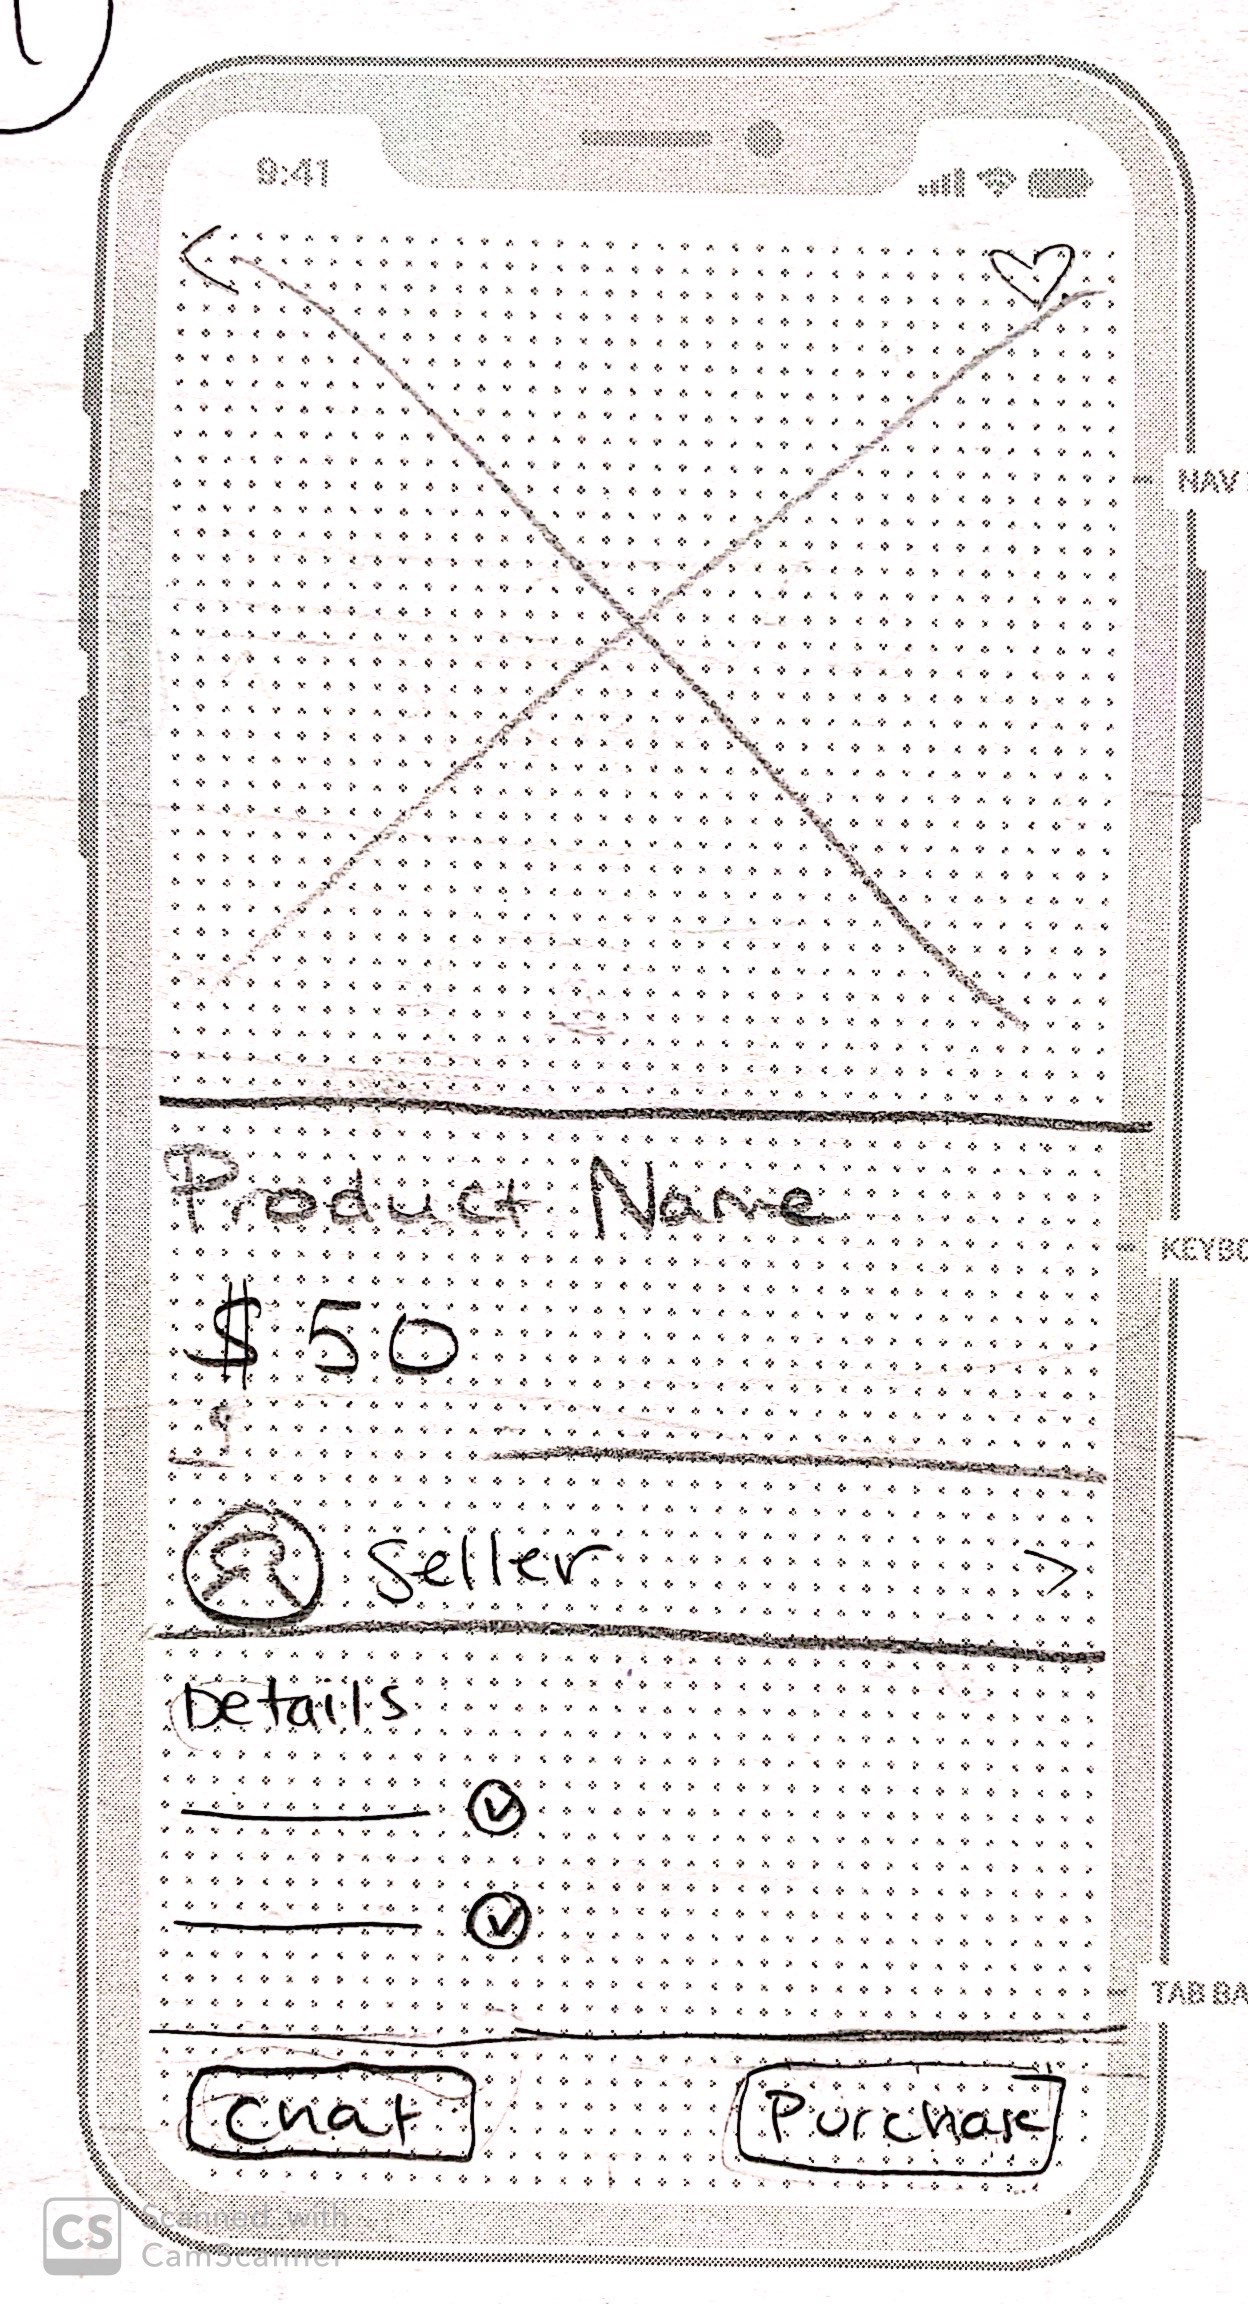 9:41
NAV
Product Name
KEYBO
$50
Seller
Details
TAB BA
Chat
Purchase
CS
Scanned with
CamScanner